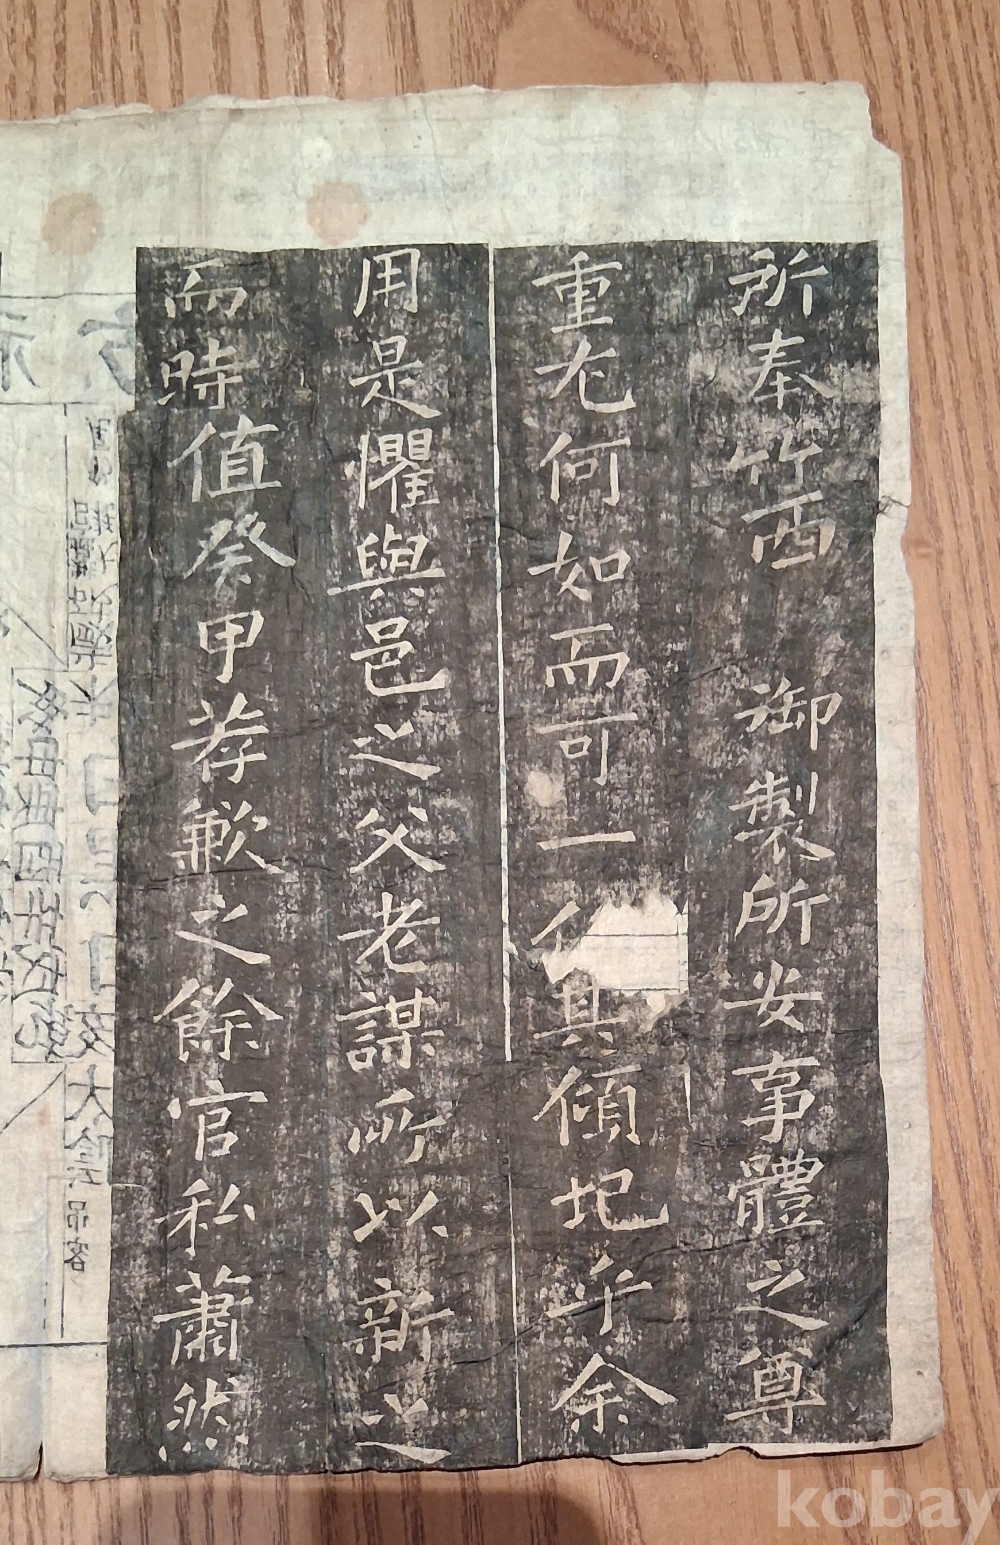 所奉竹西 御製所安事體之尊
重尤何如而可一任其傾圮乎余
用是懼與邑之父老謀所以新之
而時值癸甲荐歉之餘官私蕭然
kobay